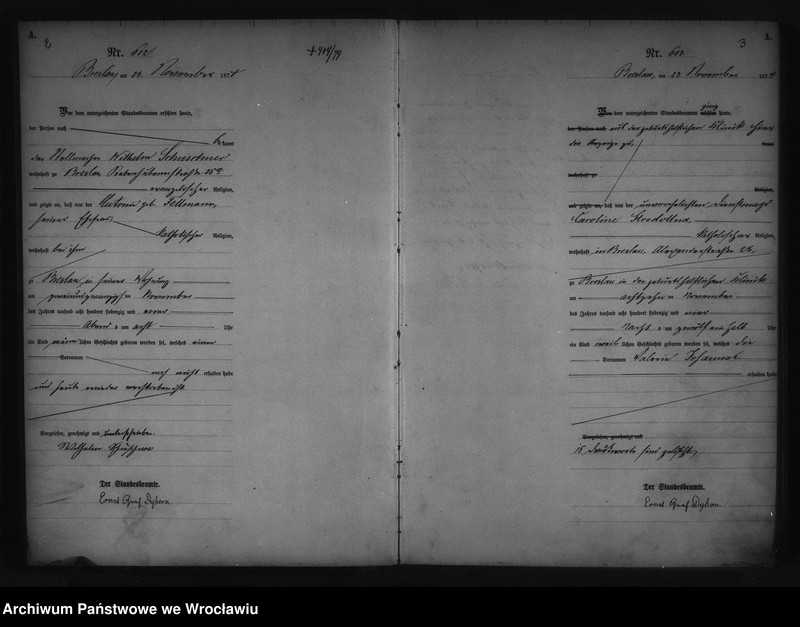 A.
2
Nr. 602
+ 419/74
Breslau, am 22. November 1874
Vor dem unterzeichneten Standesbeamten erschien heute,
der Person nach
kannt
der Stellmacher Wilhelm
wohnhaft zu Breslau
evangelischer Religion,
und zeigte an, daß von der
seiner Ehefrau
katholischer Religion,
wohnhaft bei ihm
zu Breslau in seiner Wohnung
am zweiundzwanzigsten November
des Jahres tausend acht hundert siebenzig und vier
Abend s um acht Uhr
ein Kind männ lichen Geschlechts geboren worden sei, welches einen
Vornamen
noch nicht erhalten habe
und heute wieder verstorben ist
Vorgelesen, genehmigt und unterschrieben.
Wilhelm
Der Standesbeamte.
Ernst Graf Dyhrn
3
A.
Nr. 603
Breslau, am 23. November 1874
Vor dem unterzeichneten Standesbeamten ging
erschien heute,
der Person nach aus der geburtshilflichen Klinik
die Anzeige
kannt
wohnhaft zu
Religion,
und zeigte an, daß von der unverehelichten Dienstmagd
Caroline
katholischer Religion,
wohnhaft in Breslau,
zu Breslau in der geburtshilflichen Klinik
am achtzehn ten November
des Jahres tausend acht hundert siebenzig und vier
Nachts um zwölf ein halb Uhr
ein Kind weib lichen Geschlechts geboren worden sei, welches die
Vornamen Valerie
erhalten habe
Vorgelesen, genehmigt und
15 Druckworte sind gelöscht.
Der Standesbeamte.
Ernst Graf Dyhrn
Archiwum Państwowe we Wrocławiu